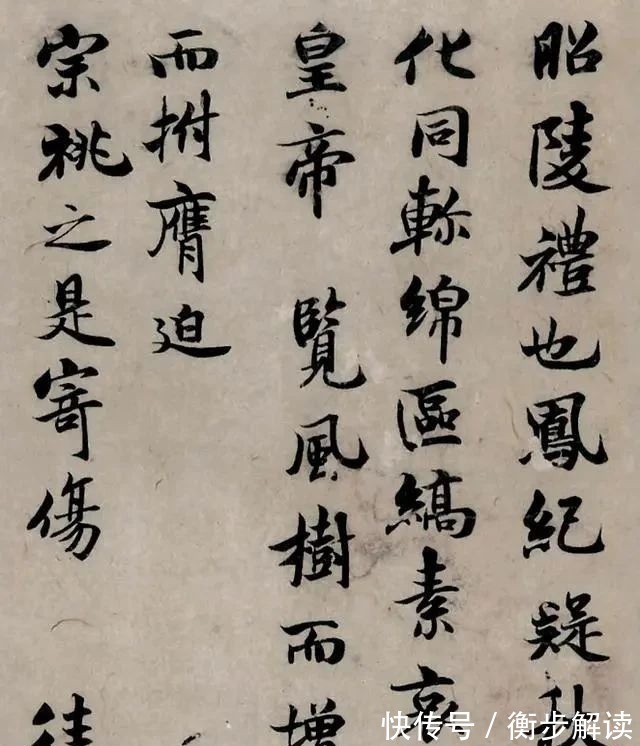 昭陵禮也鳳紀疑
化同軫綿區縞素哀
皇帝 覽風樹而增
而拊膺迫
宗祧之是寄傷
快传号 / 衡步解读